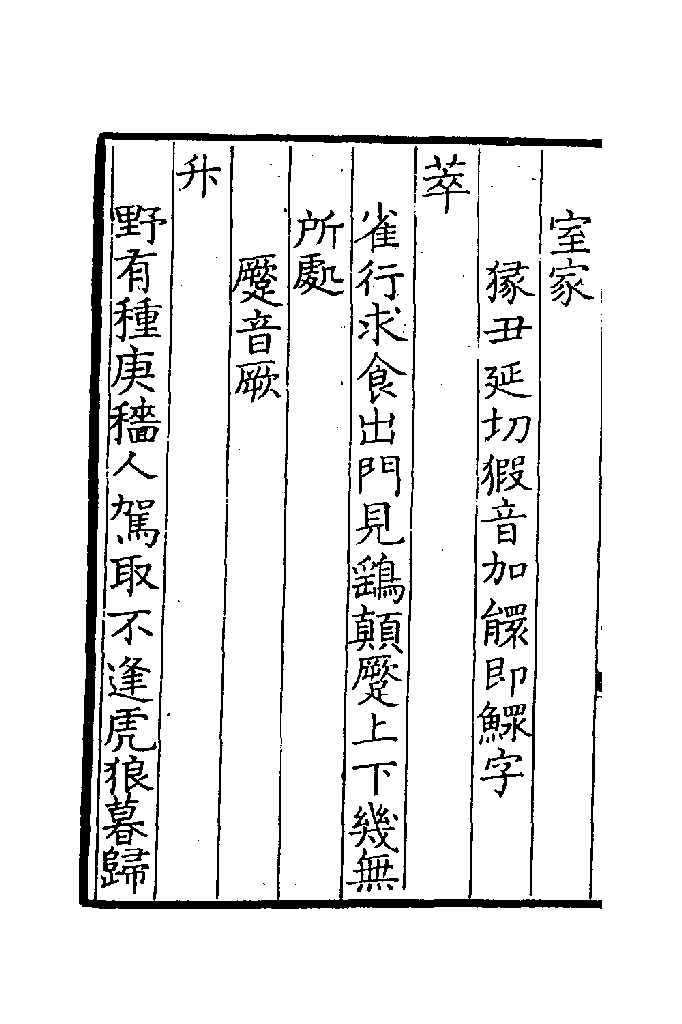 室家
猭丑延切猳音加䑏即鰥字
萃
雀行求食出門見鷂顛蹷上下幾無
所處
蹷音厥
升
野有種庚穡人駕取不逢虎狼暮歸